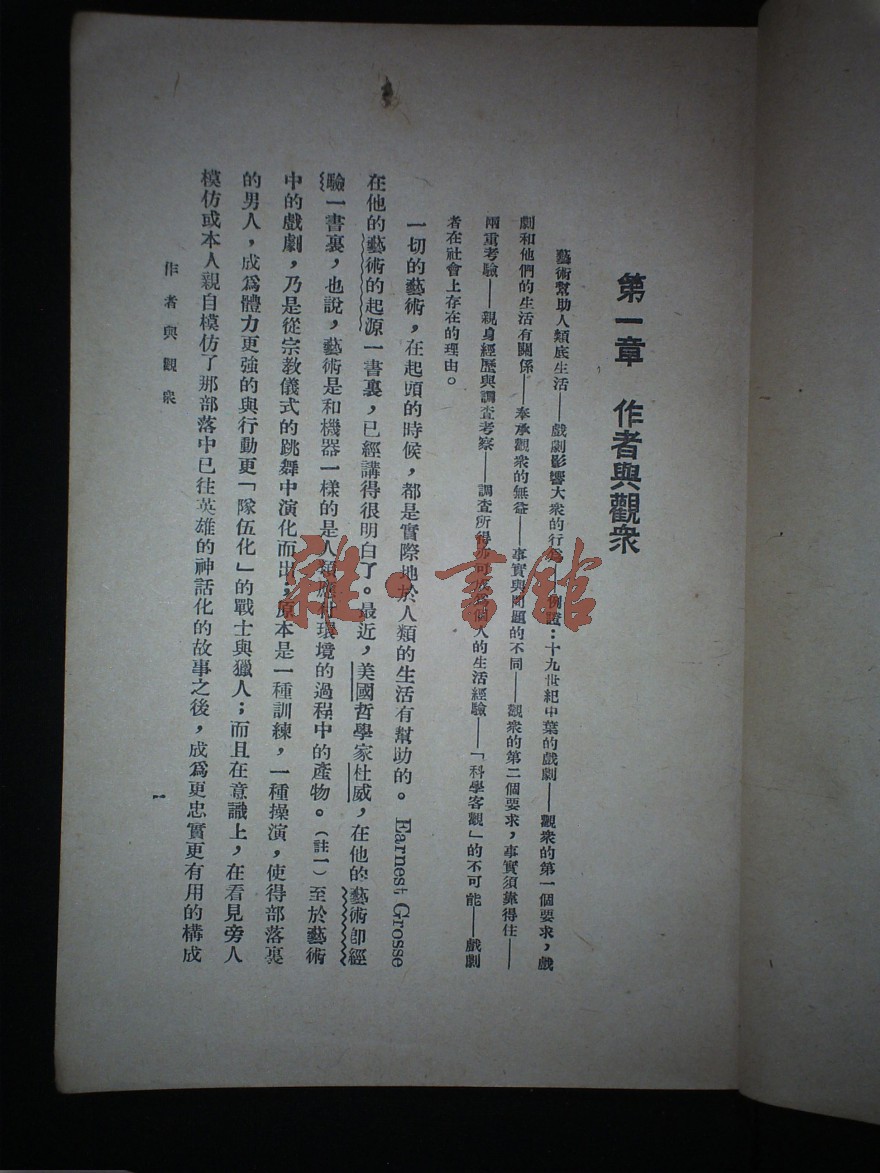 第一章 作者與觀衆
藝術幫助人類底生活——戲劇影響大衆的行爲——例證：十九世紀中葉的戲劇——觀衆的第一個要求，戲
劇和他們的生活有關係——奉承觀衆的無益——事實與問題的不同——觀衆的第二個要求，事實須靠得住——
兩重考驗——親身經歷與調查考察——調查所得亦可成爲個人的生活經驗——「科學客觀」的不可能——戲劇
者在社會上存在的理由。
一切的藝術，在起頭的時候，都是實際地於人類的生活有幫助的。Earnest Grosse
在他的藝術的起源一書裏，已經講得很明白了。最近，美國哲學家杜威，在他的藝術卽經
驗一書裏，也說，藝術是和機器一樣的是人類應付環境的過程中的產物。（註一）至於藝術
中的戲劇，乃是從宗教儀式的跳舞中演化而出，原本是一種訓練，一種操演，使得部落裏
的男人，成爲體力更強的與行動更「隊伍化」的戰士與獵人；而且在意識上，在看見旁人
模仿或本人親自模仿了那部落中已往英雄的神話化的故事之後，成爲更忠實更有用的構成
作者與觀衆
一
雜·書館